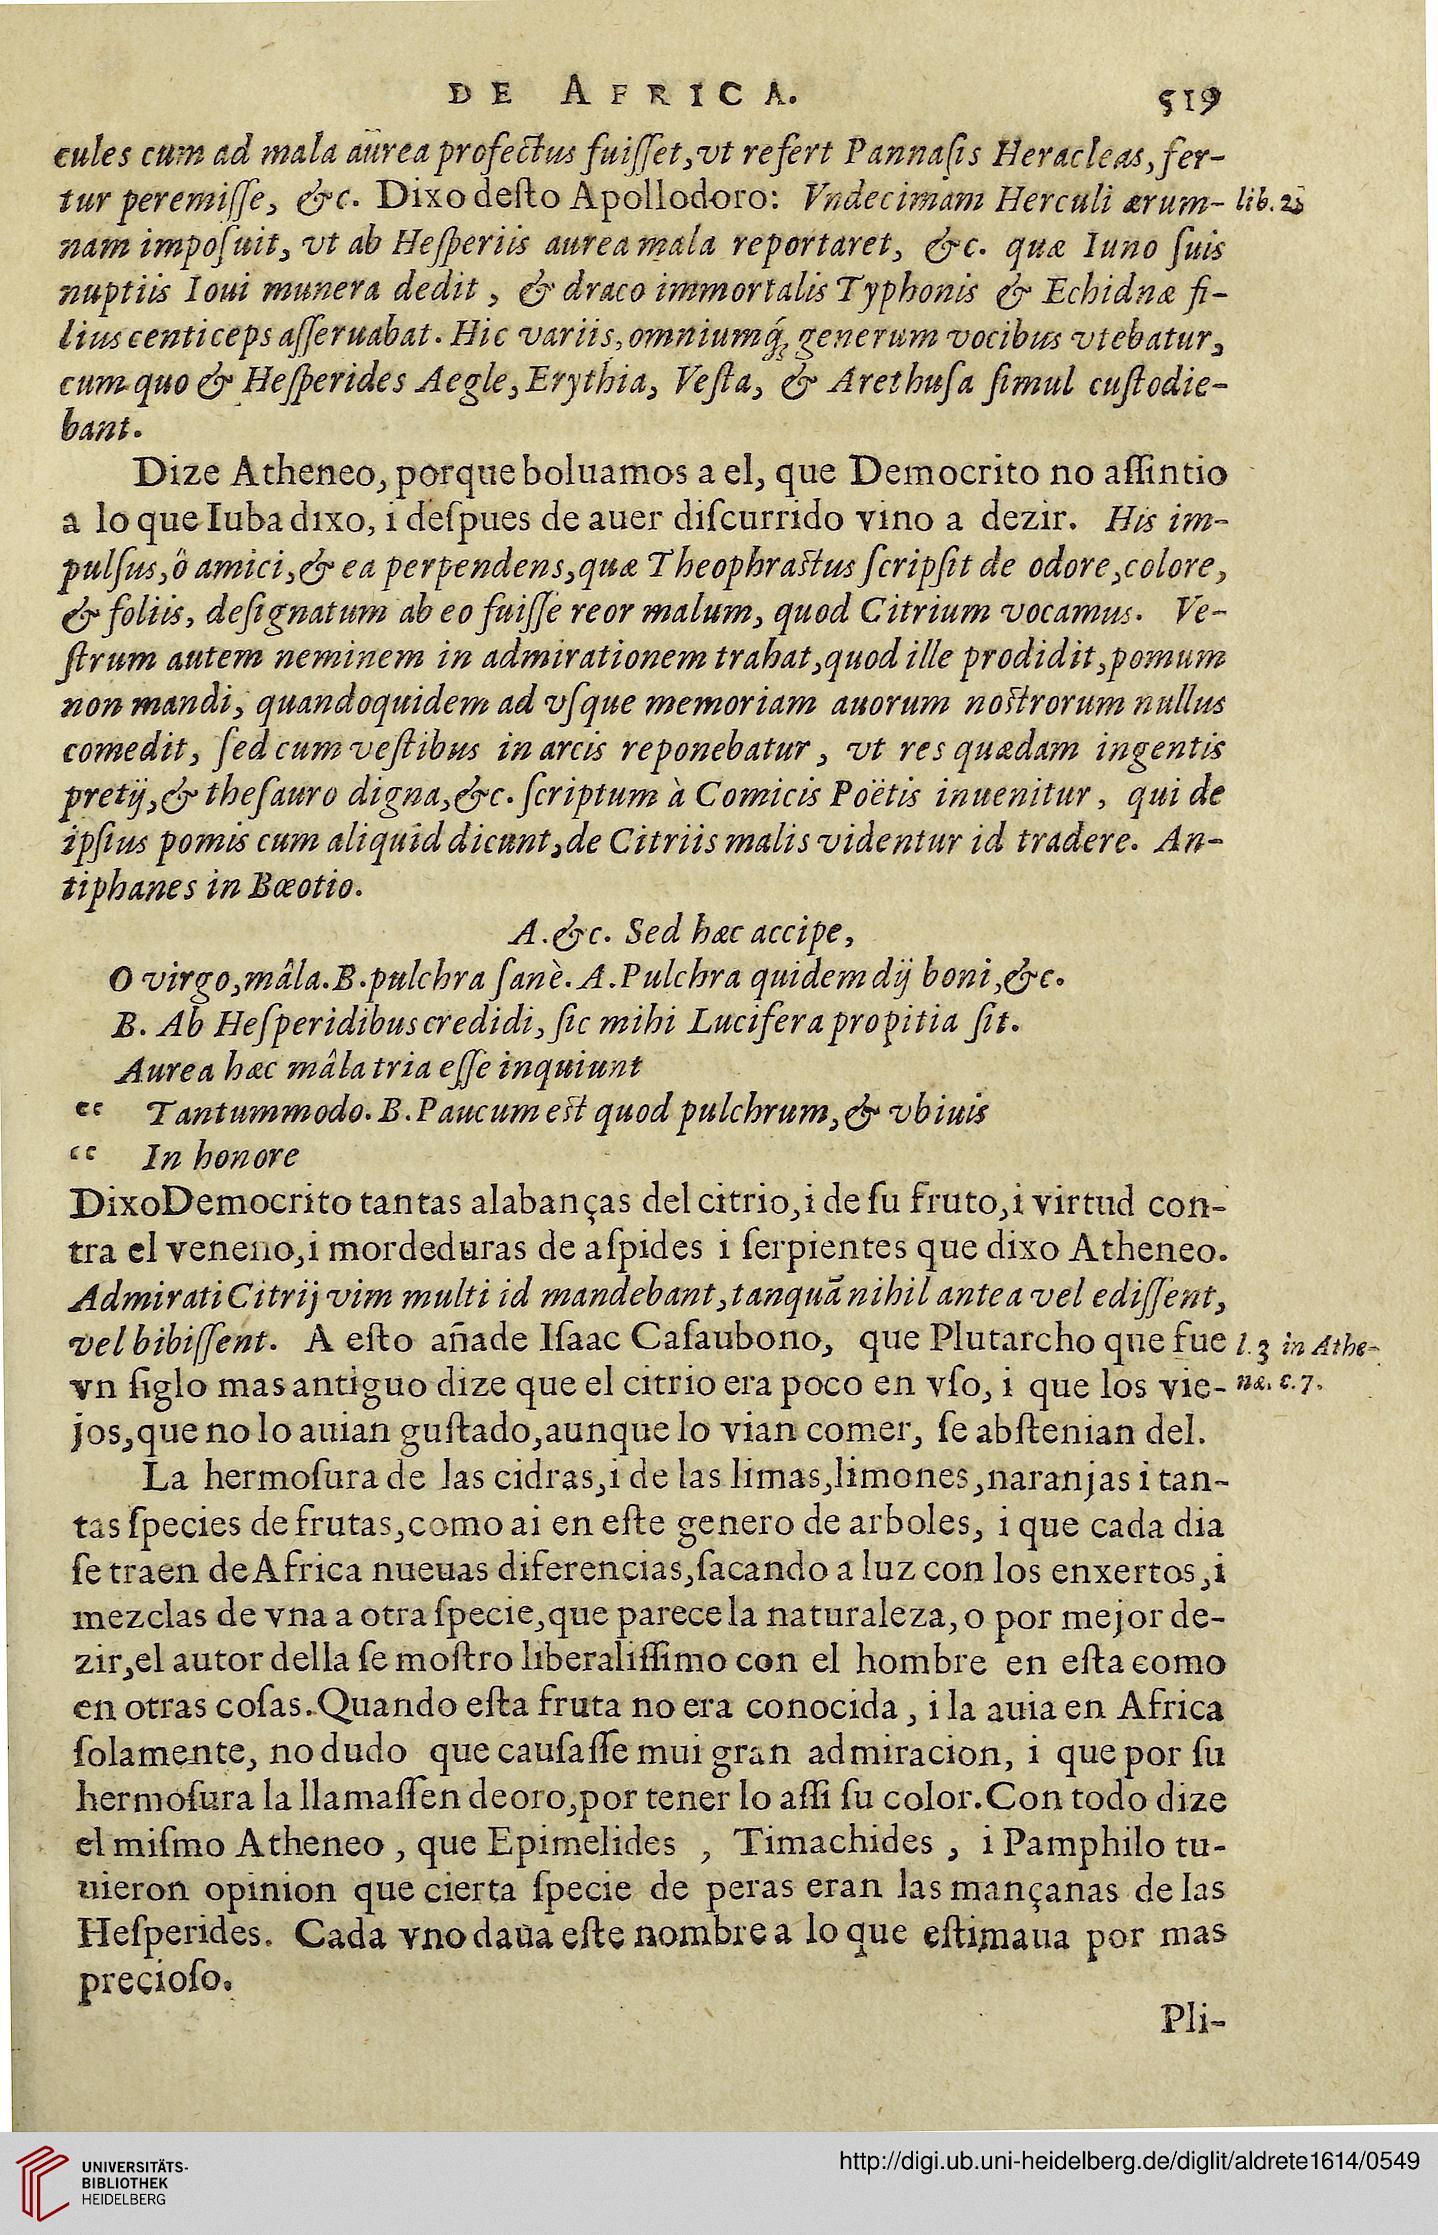 DE AFRICA. 519
cules cum ad mala aurea profectus fuiſſet, vt refert Pannaſis Heracleas, fer-
tur peremiſſe, &c. Dixo deſto Apollodoro: Vndecimam Herculi ærum- lib. 2
nam impoſuit, vt ab Heſperiis aurea mala reportaret, &c. quæ Iuno ſuis
nuptiis Ioui munera dedit, & draco immortalis Typhonis & Echidnæ fi-
lius centiceps aſſeruabat. Hic variis, omniumq́; generum vocibus vtebatur,
cum quo & Heſperides Aegle, Erythia, Veſta, & Arethuſa ſimul cuſtodie-
bant.
Dize Atheneo, porque boluamos a el, que Democrito no aſſintio
a lo que Iuba dixo, i deſpues de auer diſcurrido vino a dezir. His im-
pulſus, ô amici, & ea perpendens, quæ Theophraſtus ſcripſit de odore, colore,
& foliis, deſignatum ab eo fuiſſe reor malum, quod Citrium vocamus. Ve-
ſtrum autem neminem in admirationem trahat, quod ille prodidit, pomum
non mandi, quandoquidem ad vſque memoriam auorum noſtrorum nullus
comedit, ſed cum veſtibus in arcis reponebatur, vt res quædam ingentis
pretij, & theſauro digna, &c. ſcriptum à Comicis Poëtis inuenitur, qui de
ipſius pomis cum aliquid dicunt, de Citriis malis videntur id tradere. An-
tiphanes in Bœotio.
A. &c. Sed hæc accipe,
O virgo, mâla. B. pulchra ſanè. A. Pulchra quidem dij boni, &c.
B. Ab Heſperidibus credidi, ſic mihi Lucifera propitia ſit.
Aurea hæc mâla tria eſſe inquiunt
“ Tantummodo. B. Paucum eſt quod pulchrum, & vbiuis
“ In honore
Dixo Democrito tantas alabanças del citrio, i de ſu fruto, i virtud con-
tra el veneno, i mordeduras de aſpides i ſerpientes que dixo Atheneo.
Admirati Citrij vim multi id mandebant, tanquã nihil antea vel ediſſent,
vel bibiſſent. A eſto añade Iſaac Caſaubono, que Plutarcho que fue l. 3 in Athe-
vn ſiglo mas antiguo dize que el citrio era poco en vſo, i que los vie- næ. c. 7.
jos, que no lo auian guſtado, aunque lo vian comer, ſe abſtenian del.
La hermoſura de las cidras, i de las limas, limones, naranjas i tan-
tas ſpecies de frutas, como ai en eſte genero de arboles, i que cada dia
ſe traen de Africa nueuas diferencias, ſacando a luz con los enxertos, i
mezclas de vna a otra ſpecie, que parece la naturaleza, o por mejor de-
zir, el autor della ſe moſtro liberaliſſimo con el hombre en eſta como
en otras coſas. Quando eſta fruta no era conocida, i la auia en Africa
ſolamente, no dudo que cauſaſſe mui gran admiracion, i que por ſu
hermoſura la llamaſſen de oro, por tener lo aſſi ſu color. Con todo dize
el miſmo Atheneo, que Epimelides, Timachides, i Pamphilo tu-
uieron opinion que cierta ſpecie de peras eran las mançanas de las
Heſperides. Cada vno daua eſte nombre a lo que eſtimaua por mas
precioſo.
Pli-
UNIVERSITÄTS-
BIBLIOTHEK
HEIDELBERG
http://digi.ub.uni-heidelberg.de/diglit/aldrete1614/0549